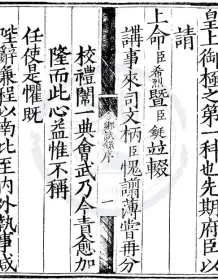 皇上御極之第一科也先期府臣以
請
上命臣希烈暨臣鋌竝輟
講事來司文柄臣愧謭薄嘗再分
鄉試錄序
一
校禮闈一典會武乃今責愈加
隆而此心益惟不稱
任使是懼既
陛辭兼程以南比至內外執事咸